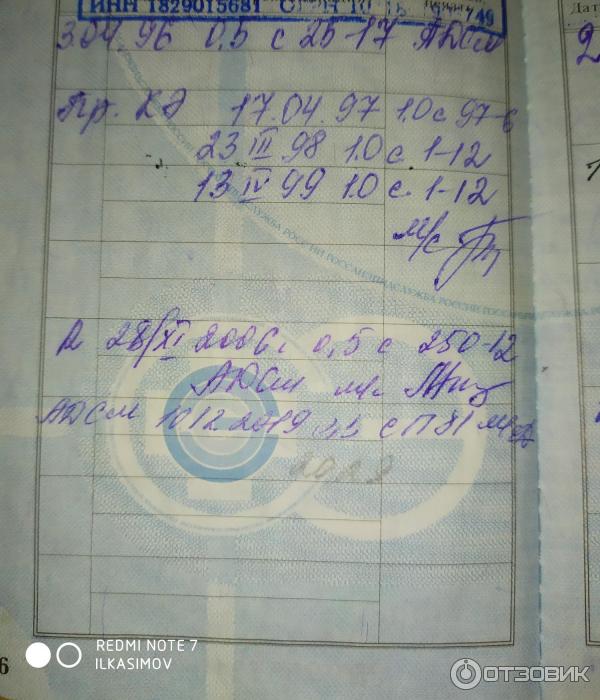 ИНН 1829015681
Дат
3.04.96 0,5 с 25-17 АДСм
Пр. КЭ 17.04.97 1.0 с 97-6
23 III 98 1.0 с. 1-12
13 IV 99 1.0 с. 1-12
м/с
R 28/XI 2006г 0,5 с 250-12
АДСм м/с
АДСм 10 12 2019 0,5 с П81 м/с
2029
6
REDMI NOTE 7
ILKASIMOV
ОТЗОВИК